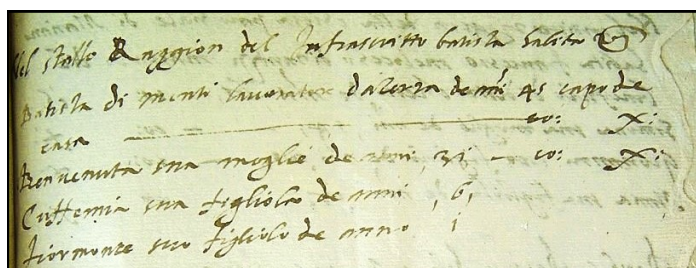 Nel stallo Raggion del Infrascritto batista Salita
Batista di menti lavorator da terra de anni 45 capo de
casa co: X:
Benvenuta sua moglie de anni 31 – co: X:
Cuffemia sua figliola de anni, 6,
Fiormonte suo figliolo de anno 1